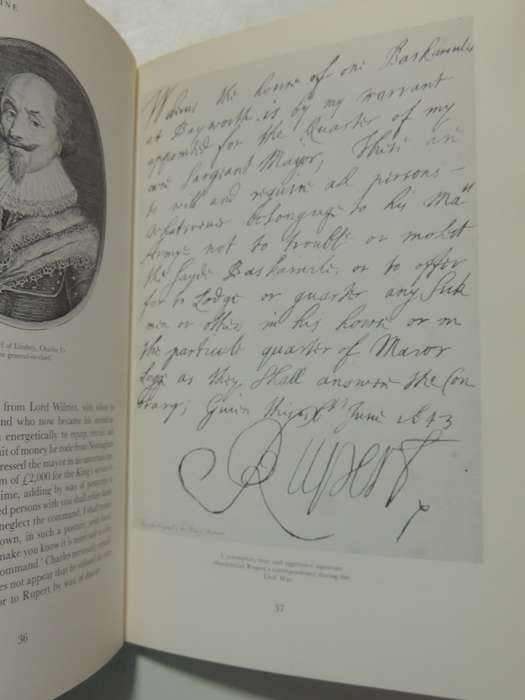 INE
of Lindsey, Charles I's
general-in-chief.
from Lord Wilmot, with whom
and who now became his second
energetically to equip, recruit and
uit of money he rode from Nottingham
ressed the mayor in no uncertain
m of £2,000 for the King's
ime, adding by way of postscript
ed persons with you shall
neglect the command, I shall
own, in such a posture, with horse,
make you know it is more safe to
command.' Charles
oes not appear that he
or to Rupert by way of
36
Whereas the howse of one Baskervile
at Bayworth is by my warrant
appointed for the Quarter of my
owne Sargiant Major, These are
to will and require all persons
whatsoever belonginge to his Ma:ties
Armye not to trouble or molest
the sayde Baskervile, or to offer
for to Lodge or quarter any
men or others in his howse or in
the particuler quarter of Maior
Legge as they shall answere the Con
trary; Given this June 1643
Rupert
A peremptory tone and aggressive signature
characterize Rupert's correspondence during the
Civil War.
37